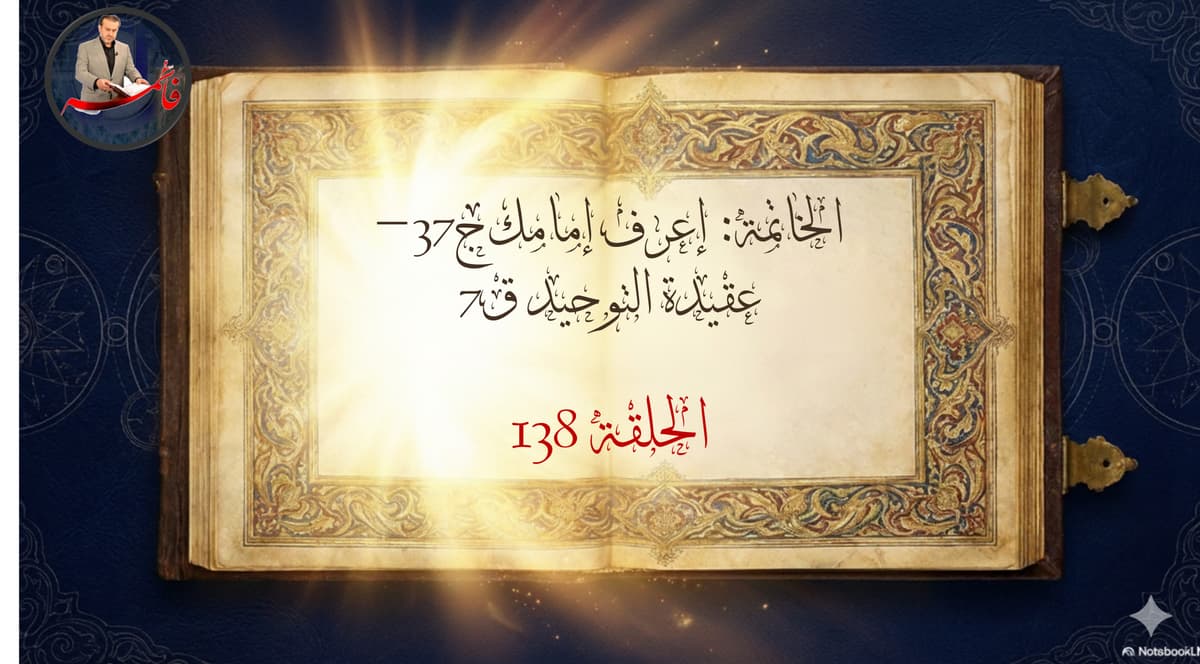 فاطمة
الخاتمة: إعرف إمامك ج37 –
عقيدة التوحيد ق7
الحلقة 138
NotebookL